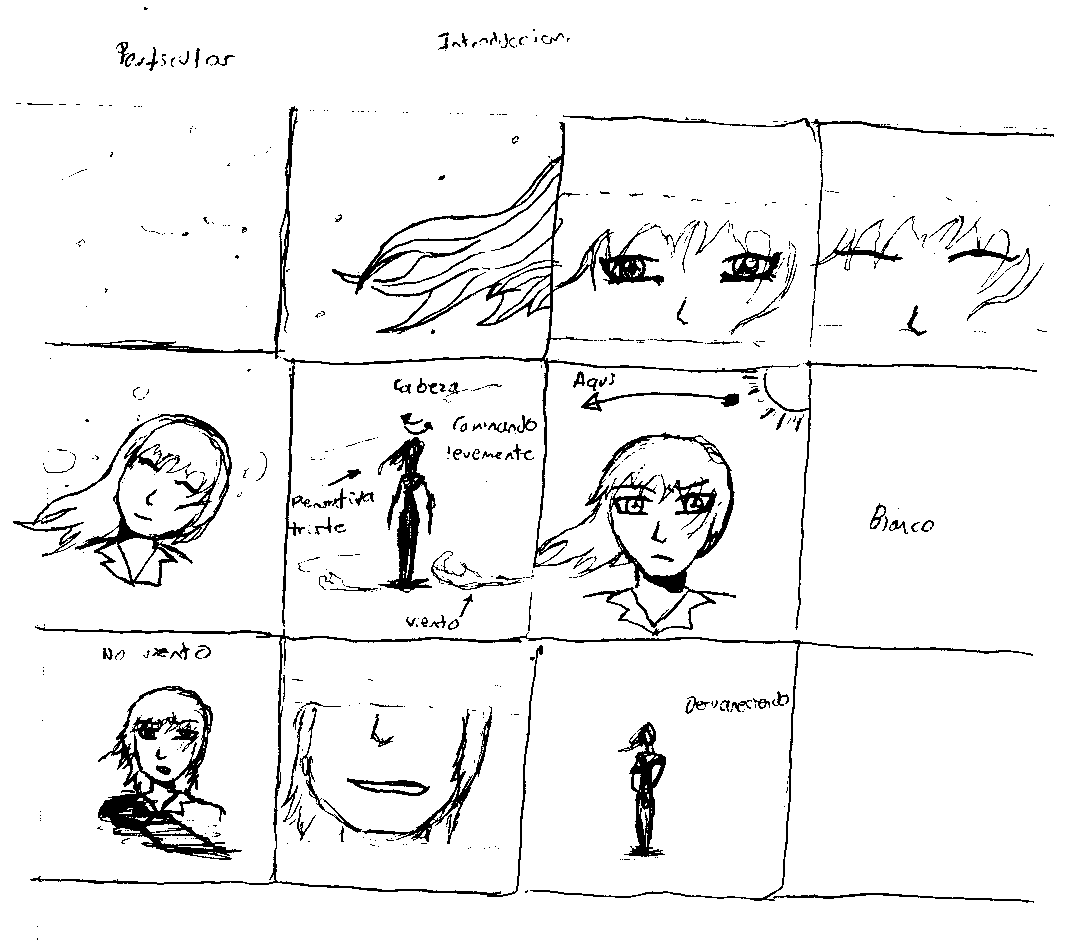 Introduccion.
Cabeza
Caminando
levemente
triste
viento
Aqui
Blanco
No viento
Desvaneciendo